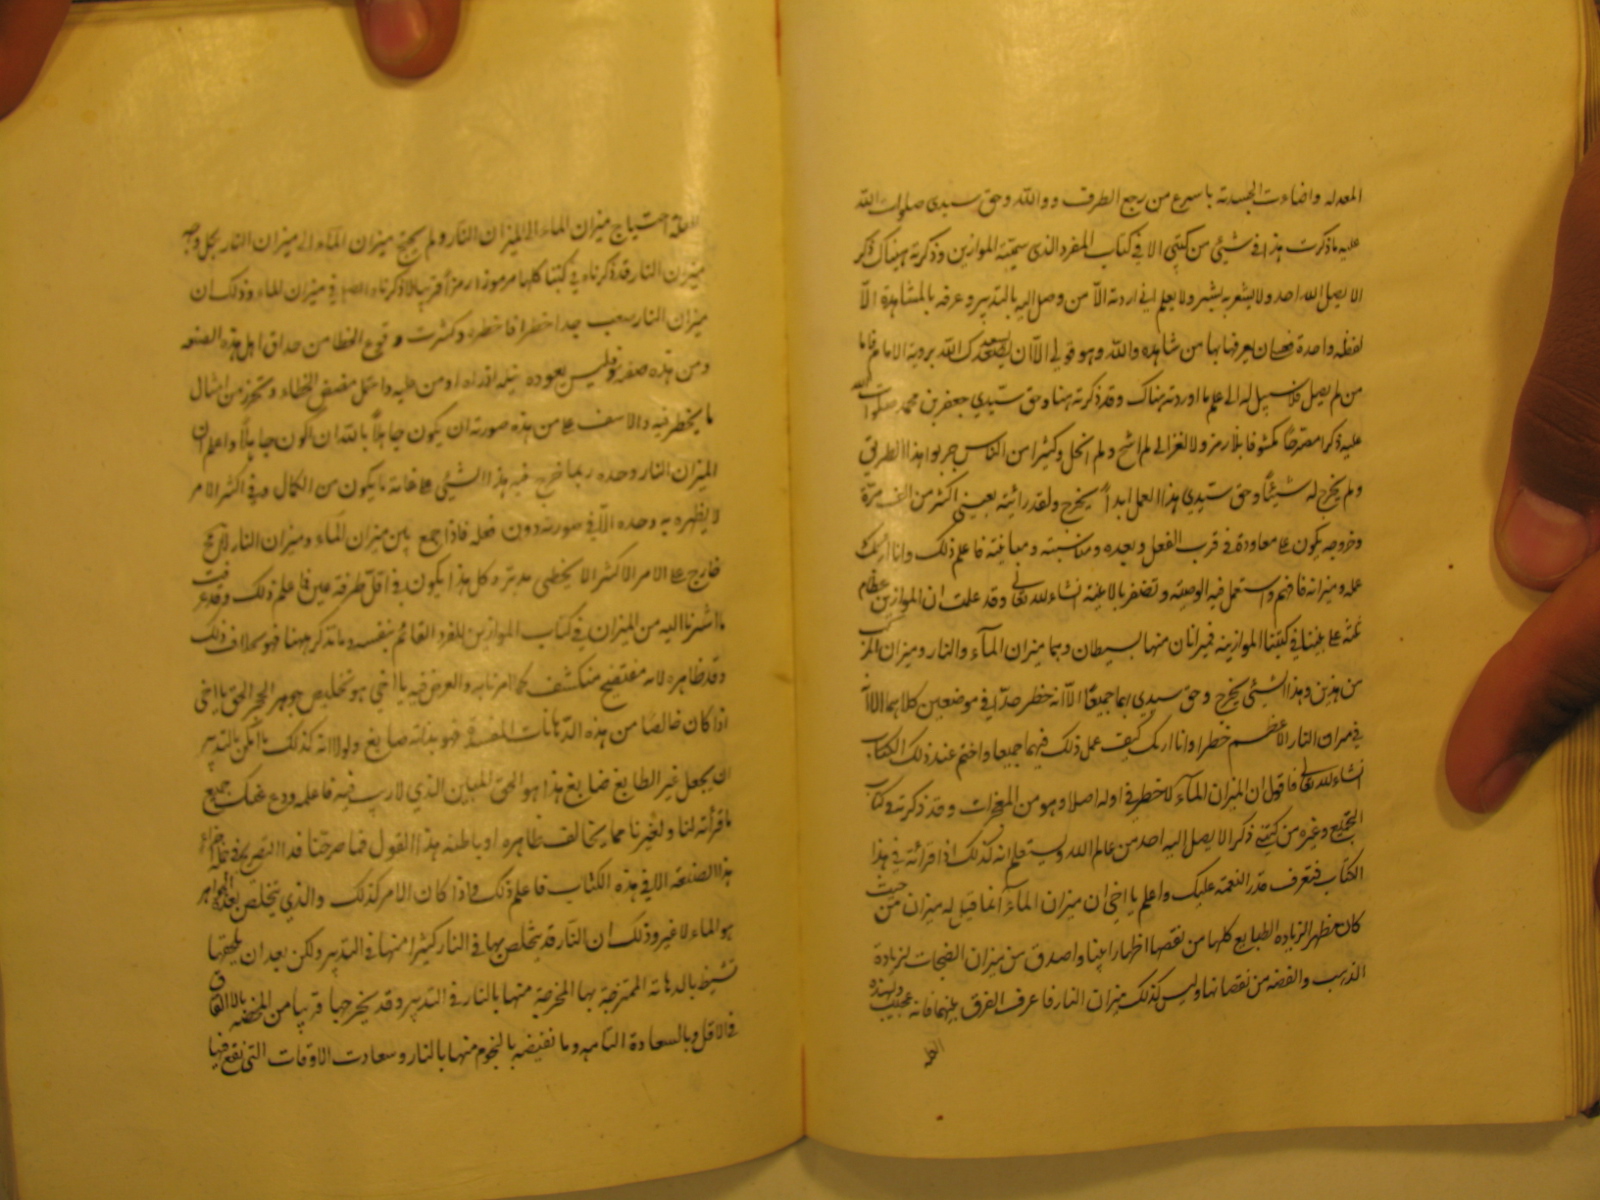 المعدله واضاءت الجسدته باسرع من رجع الطرف ووالله وحق سيدى صلوات الله
عليه ماذكرت هذا فى شيئى من كتبى الا فى كتاب المفرد الذى سميته الموازين وذكرته هيناك ذكر
الا يصل الله احد ولا يشعر به بشر ولا يعلم انى اردته الا من وصل اليه بالتدبير وعرفه بالمشاهدة الا
لفظه واحدة يعرفها بها من شاهده والله وهو قولى الا ان يسعدك الله بروية الامام فاما
من لم يصل فلا سبيل له الى علم ما اوردته هناك وقد ذكرته هنا وحق سيدي جعفر بن محمد صلوات الله
عليه ذكرا مصرحا مكشوفا بلا رمز ولا لغز الى لم اشح ولم ابخل وكثيرا من الناس جربوا هذا الطريق
ولم يخرج له شيئا وحق سيدي هذا العمل ابدا يخرج ولقد رائيته بعينى اكثر من الف مرة
وخروجه يكون على معاودة فى قرب الفعل وبعده ومناسبته ومباينته فاعلم ذلك وانا اريك
عمله وميزانه فافهم واستعمل فيه الوصيه وتضفر بالاغيته انشاء الله تعالى وقد علمت ان الموازين عظام
ثلثة على فى كتبنا الموازينيه فميزانان منها بسيطان وهما ميزان المآء والنار وميزان المركب
من هذين وهذا الشيئى يخرج وحق سيدي بهما جميعا الا انه خطر جدا فى موضعين كلاهما الا
فى ميزان النار الاعظم خطرا وانا اريك كيف عمل ذلك فيهما جميعا واختم عند ذلك الكتاب
انشاء الله تعالى فاقول ان الميزان المآء لا خطر فى اوله اصلا وهو من المعجزات وقد ذكرته فى كتاب
التجميع وغيره من كتبى ذكرا لا يصل اليه احد من عالم الله وستعلم انه كذلك اذا قرائته فى هذا
الكتاب فتعرف قدر النعمته عليك واعلم يا اخى ان ميزان المآء انما قيل له ميزان من حيث
كان مظهر الزياده الطبايع كلها من نقصها اظهارا بينا واصدق من ميزان الضجات لزيادة
الذهب والفضه من نقصانها وليس كذلك ميزان النار فاعرف الفرق بينهما فانه عجيب
العله
العله احتياج ميزان الماء الى الميزان النار ولم يحتج ميزان الماء الى ميزان النار بكل وجه
ميزان النار قد ذكرناه فى كتبنا كلها مرموزا رمزا قريبا لا ذكرناه فى ميزان الماء وذلك ان
ميزان النار صعب جدا خطرا فاخطره وكثرت وقوع الخطا من حذاق اهل هذه الصنعه
ومن هذه صفته فليس بعوده اقدام ومن عليه واحتمل مضض الخطاء وتحرز من امثال
ما يخطر فيه والاسف على من هذه صورته ان يكون جاهلا بالله ان اكون جاهلا واعلم ان
الميزان النار وحده ربما خرج فيه هذا الشيئى على غاية ما يكون من الكمال وفى اكثر الامر
لا يظهر به وحده الا فى صورته دون فعله فاذا جمع بين ميزان المآء وميزان النار
خارج على الامر الاكثر الا يخطى مدبره وكل هذا يكون فى اقل طرفة عين فاعلم ذلك وقد عرفت
ما اشرنا اليه من الميزان فى كتاب الموازين المفرد القائم بنفسه وما نذكر ههنا فهو بخلاف ذلك
وقد ظاهره لانه مفتضح منكشف والغرض فيه يا اخى هو تخليص جوهر الحجر الحق يا اخى
اذا كان خالصا من هذه الدهانات المفسدة فهو بذاته صابغ ولولا انه كذلك ما امكن بالتدبير
ان يجعل غير الطابغ صابغ هذا هو الحق المبين الذي لا ريب فيه فاعلمه ودع عنك جميع
ما قرأته لنا ولغيرنا مما يخالف ظاهره او باطنه هذا القول فما صرحنا قد التصريح فى
هذا الصنعه الا فى هذه الكتاب فاعلم ذلك فاذا كان الامر كذلك والذي يخلص هذه الجواهر
هو الماء لا غير وذلك ان النار قد يتخلص بها فى النار كثيرا منها فى التدبير ولكن بعد ان يلحقها
تشيط بالدهانه الممتزجة بها المخرجة منها بالنار فى التدبير وقد يخرج حيا قريبا من بالاتفاق
فى الاقل وبالسعادة التامه وما تفيضه بالنجوم منها بالنار وسعادت الاوقات التى تقع فيها